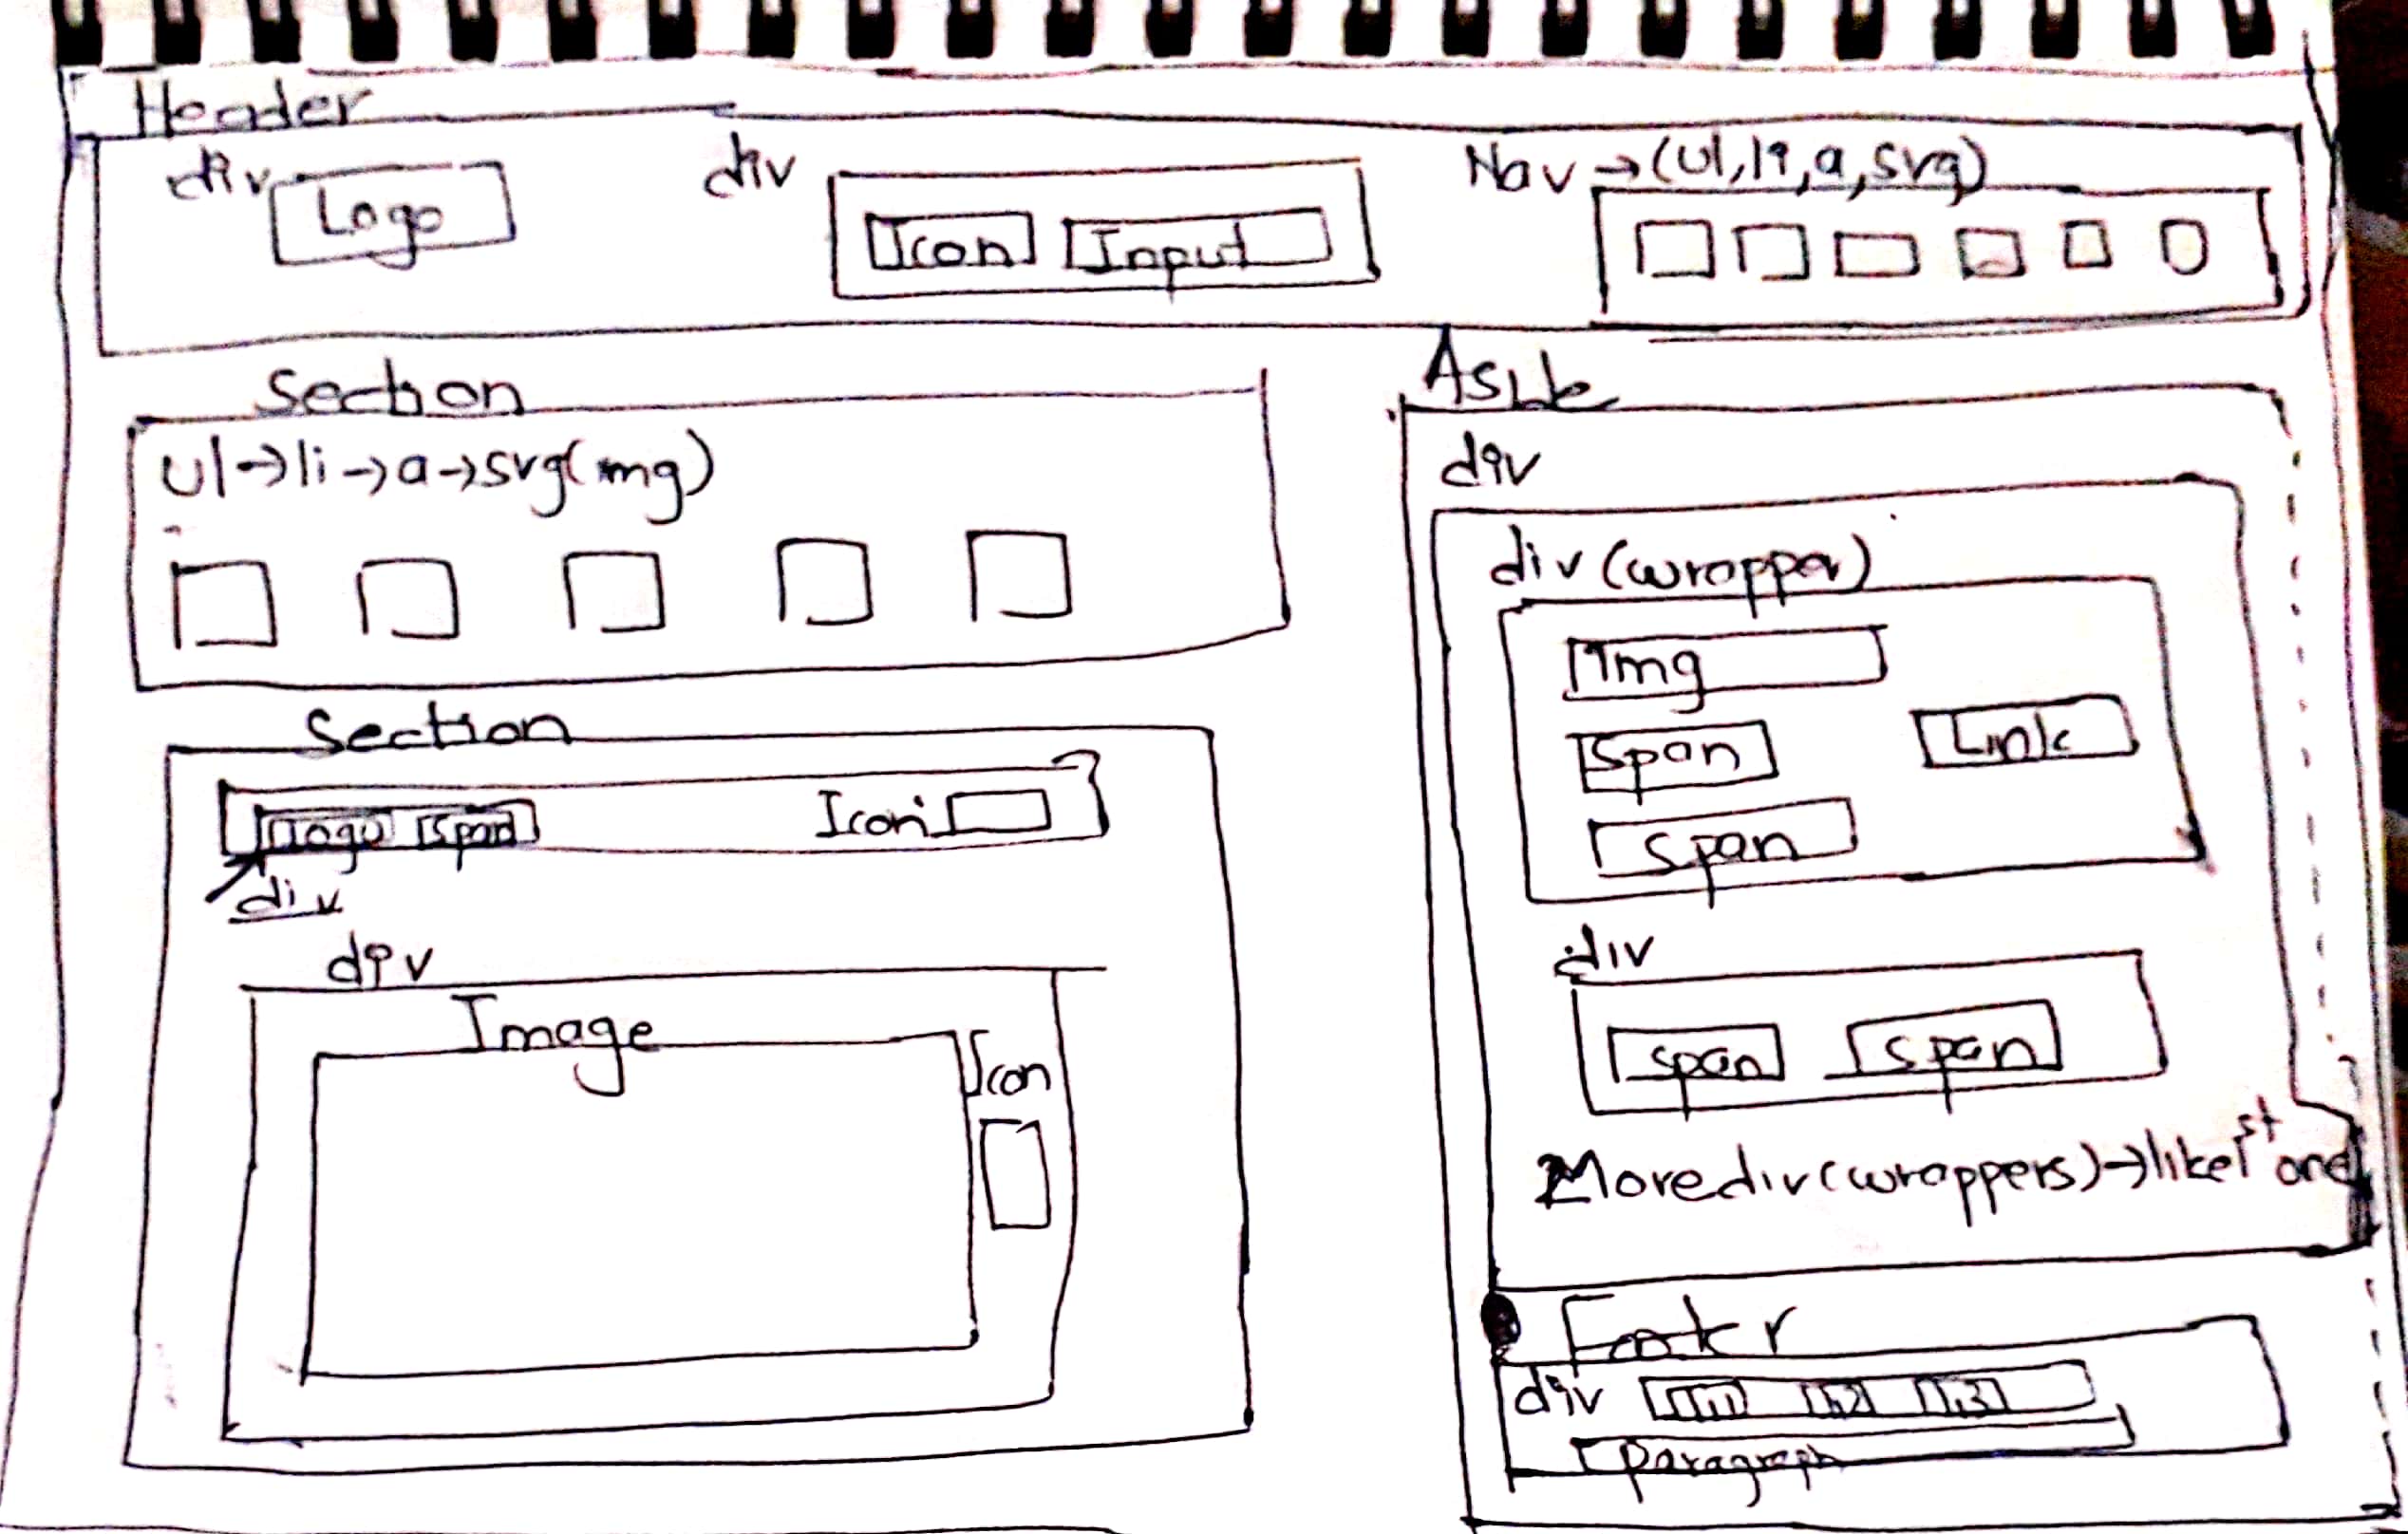 Header
div
Logo
div
Icon
Input
Nav → (ul, li, a, svg)
Section
ul → li → a → svg(img)
Section
Logo
Span
Icon
div
div
Image
Icon
Aside
div
div (wrapper)
Img
Span
Link
Span
div
span
span
More div (wrappers) → like 1st one
Footer
div
Paragraph